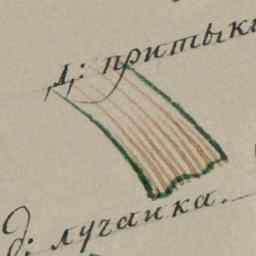 д: притыки
д: лучанка.